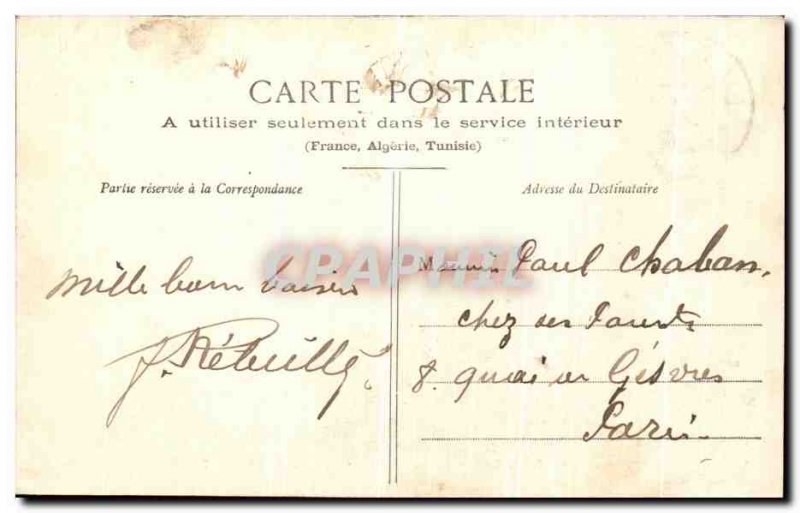 CARTE POSTALE
A utiliser seulement dans le service intérieur
(France, Algérie, Tunisie)
Partie réservée à la Correspondance
Adresse du Destinataire
CPAPHIL
Mille bons baisers
Paul Chaban,
chez ses Parents
8. quai de Gesvres
Paris